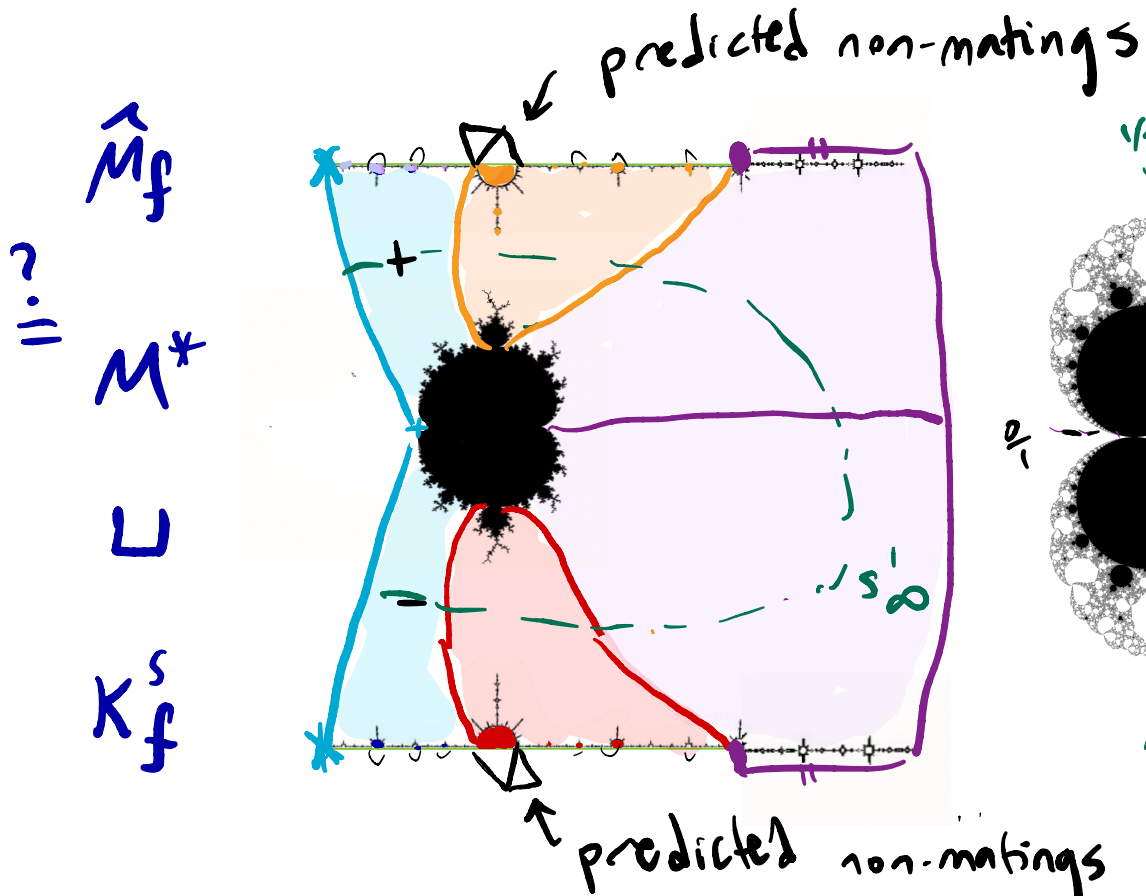 predicted non-matings
M̂f
?
≐
M*
⊔
K^s_f
+
-
S'∞
0/1
predicted non-matings